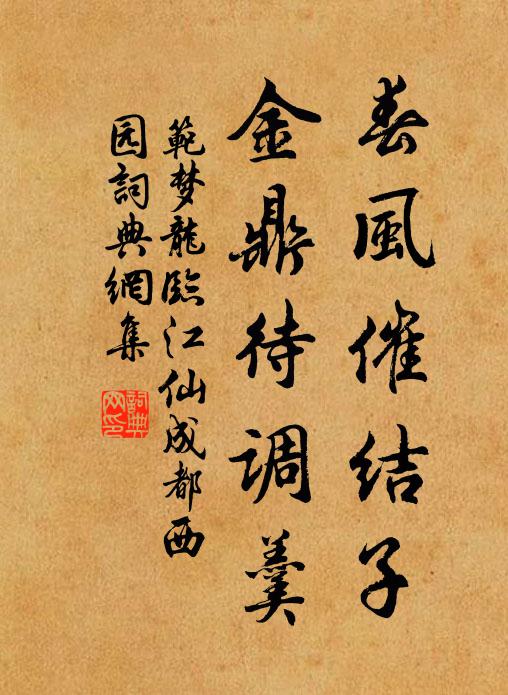 春風催結子
金鼎待调羹
範梦龍臨江仙成都西
园詞典網集
詞典网印